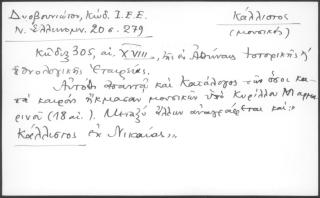 Δυοβουνιώτου, Κώδ. Ι.Ε.Ε.
Κάλλιστος
Ν. Ἑλληνομν. 20 σ. 279
(μουσικός)
Κώδιξ 305, αἰ. XVIII, τῆς ἐν Ἀθήναις Ἱστορικῆς κ'
Ἐθνολογικῆς Ἑταιρείας.
Αὐτόθι ἀπαντᾷ καὶ Κατάλογος τῶν ὅσοι κα-
τὰ καιρὸν ἤκμασαν μουσικῶν ὑπὸ Κυρίλλου Μαρμα-
ρινοῦ (18 αἰ.). Μεταξὺ ἄλλων ἀναγράφεται καὶ:
Κάλλιστος ἐκ Νικαίας"